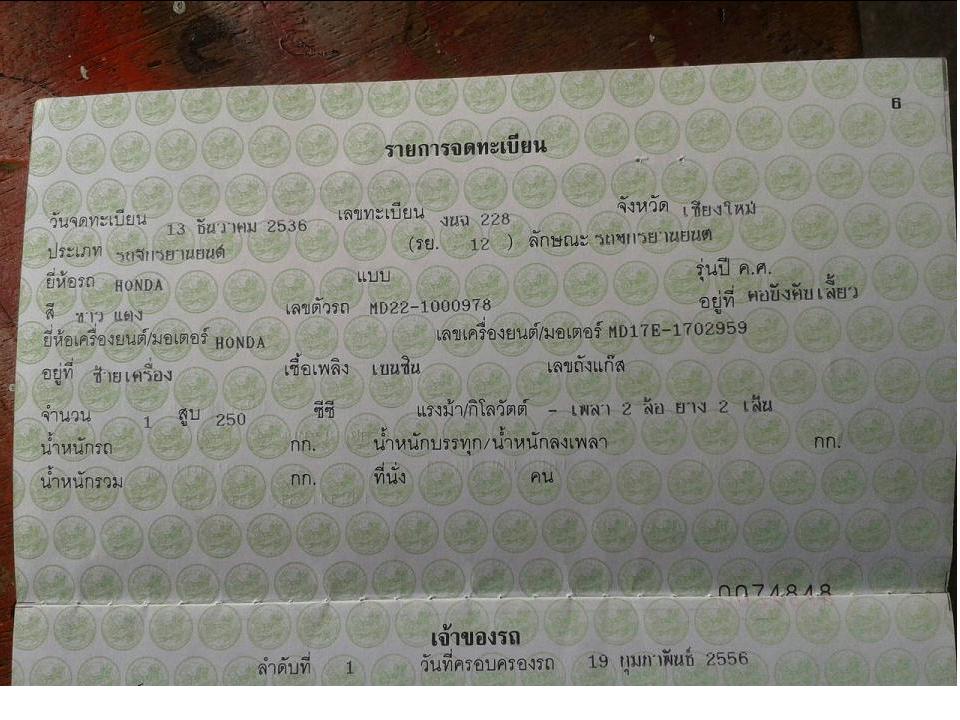 6
รายการจดทะเบียน
วันจดทะเบียน 13 ธันวาคม 2536 เลขทะเบียน งนฉ 228 จังหวัด เชียงใหม่
ประเภท รถจักรยานยนต์ (รย. 12 ) ลักษณะ รถจักรยานยนต์
ยี่ห้อรถ HONDA แบบ รุ่นปี ค.ศ.
สี ขาว แดง เลขตัวรถ MD22-1000978 อยู่ที่ คอบังคับเลี้ยว
ยี่ห้อเครื่องยนต์/มอเตอร์ HONDA เลขเครื่องยนต์/มอเตอร์ MD17E-1702959
อยู่ที่ ซ้ายเครื่อง เชื้อเพลิง เบนซิน เลขถังแก๊ส
จำนวน 1 สูบ 250 ซีซี แรงม้า/กิโลวัตต์ - เพลา 2 ล้อ ยาง 2 เส้น
น้ำหนักรถ กก. น้ำหนักบรรทุก/น้ำหนักลงเพลา กก.
น้ำหนักรวม กก. ที่นั่ง คน
0074848
เจ้าของรถ
ลำดับที่ 1 วันที่ครอบครองรถ 19 กุมภาพันธ์ 2556